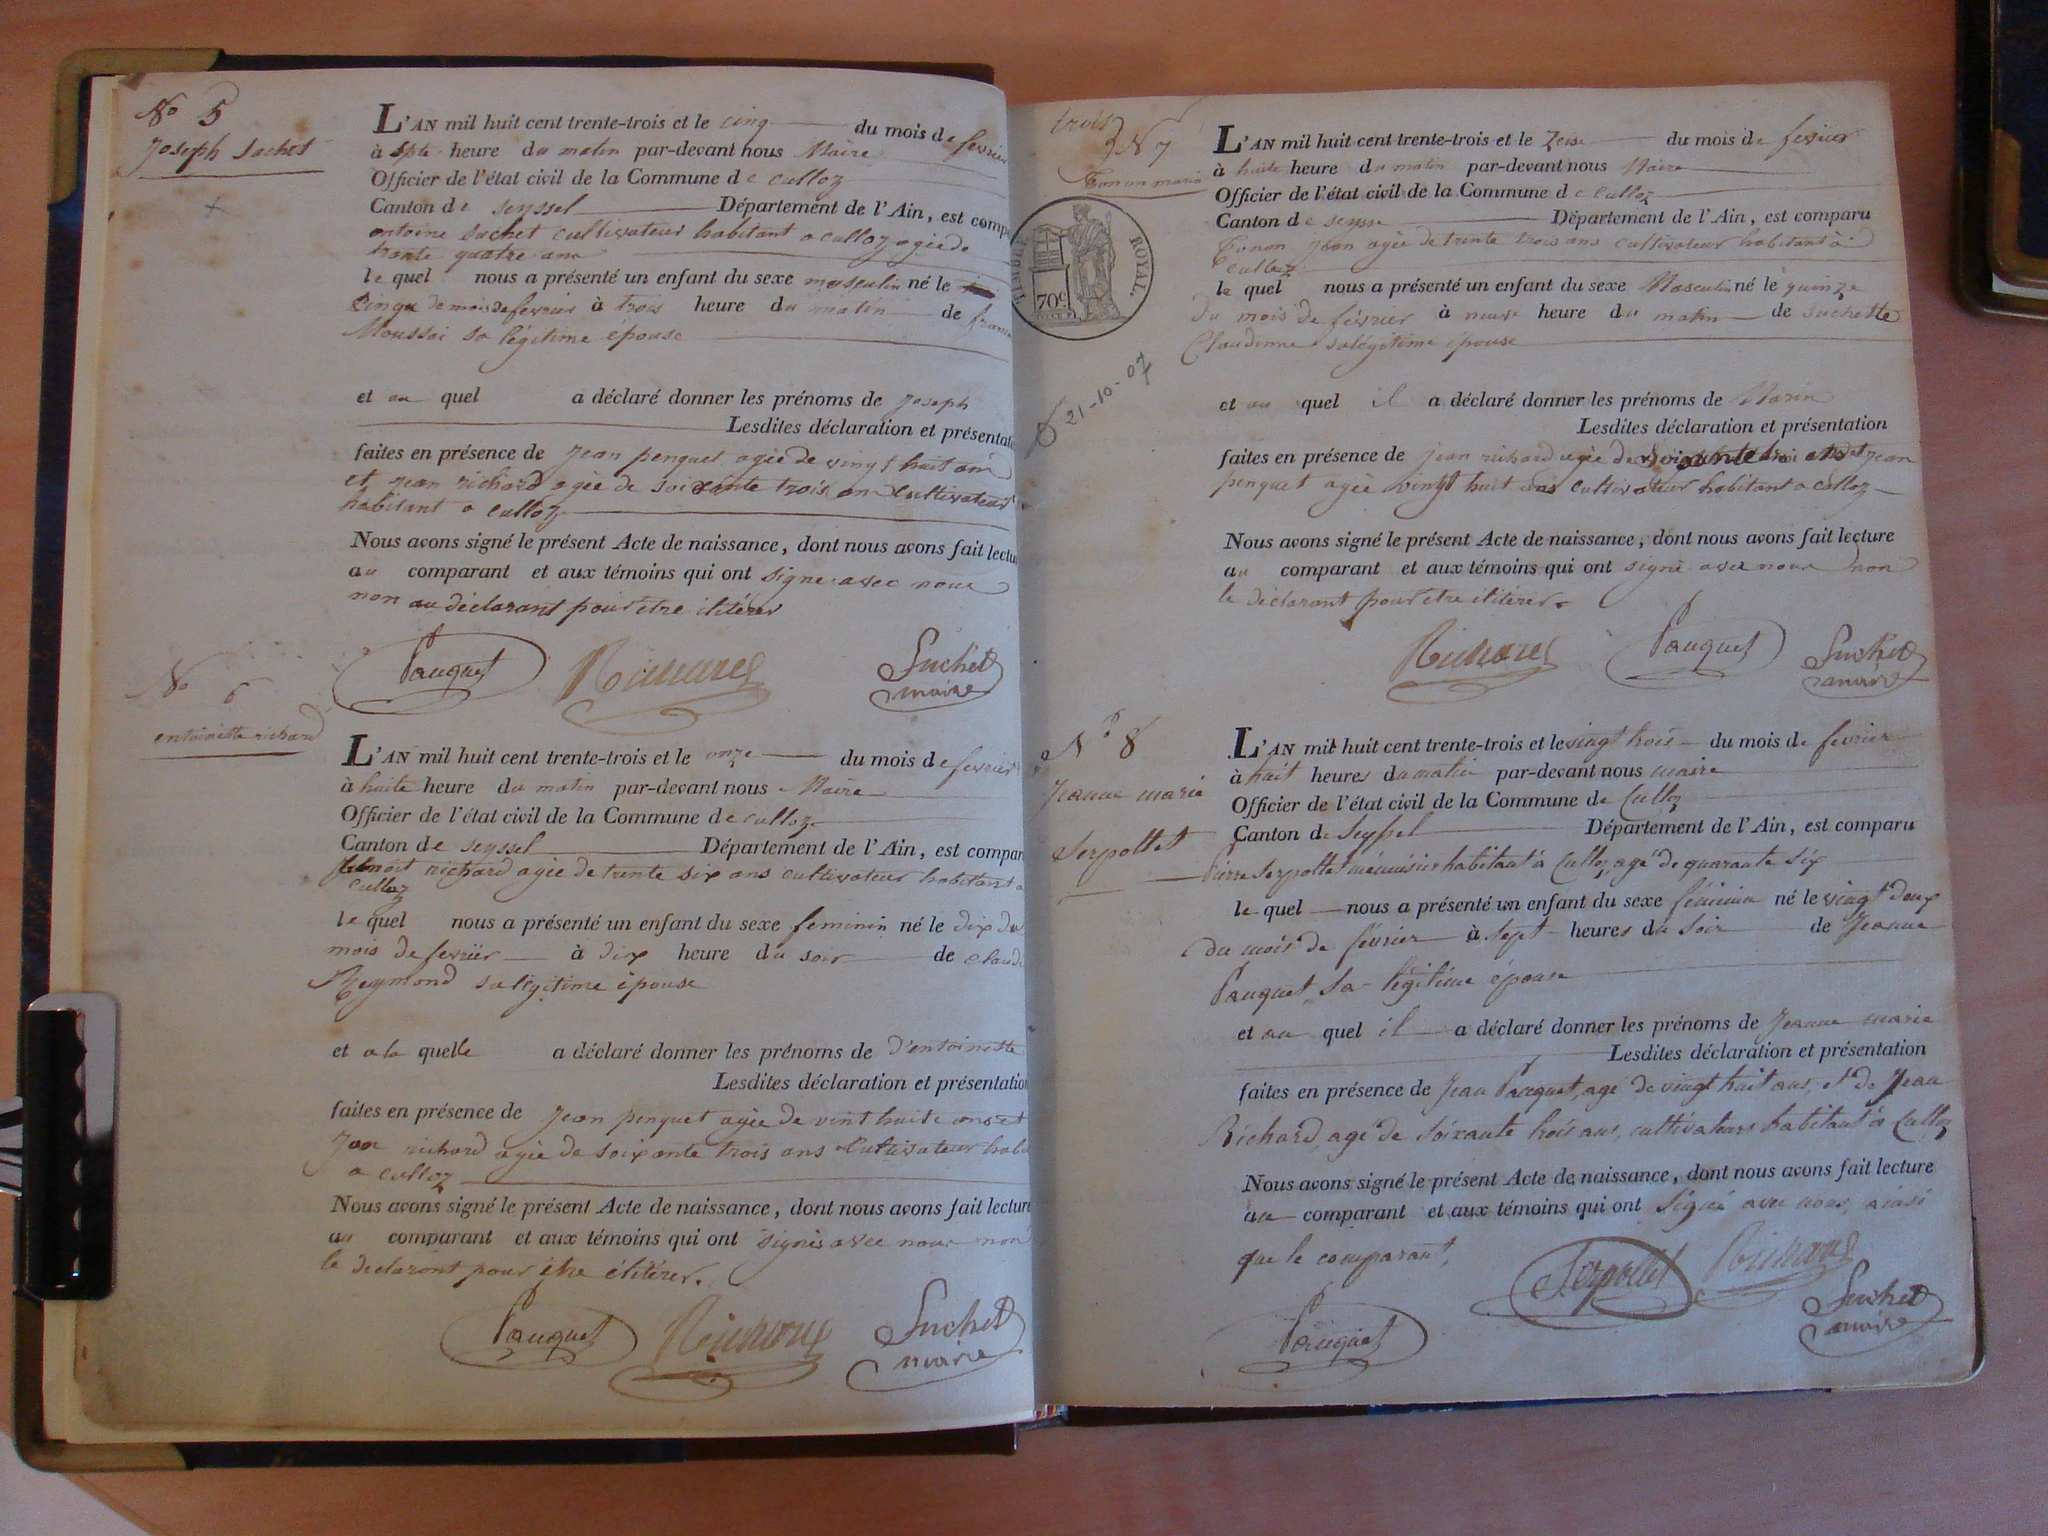 No 5
Joseph Sachet
L'AN mil huit cent trente-trois et le cinq du mois de fevrier
à Spte heure du matin par-devant nous Maire
Officier de l'état civil de la Commune de culloz
Canton de Seyssel Département de l'Ain, est comp
antoine sachet cultivateur habitant a culloz agée de
trente quatre ans
le quel nous a présenté un enfant du sexe masculin né le
Cinque de mois de fevrier à trois heure du matin de
Moussai sa légitime épouse
et au quel a déclaré donner les prénoms de Joseph
Lesdites déclaration et présentat
faites en présence de Jean penquet agée de vingt huit ans
et jean richard agée de soixante trois ans Cultivateurs
habitant a culloz
Nous avons signé le présent Acte de naissance, dont nous avons fait lectu
au comparant et aux témoins qui ont signe avec nous
non au déclarant pour etre ilitérer
Pauquet Richard Suchet
maire
No 6
entoinette richard
L'AN mil huit cent trente-trois et le onze du mois de fevrier
à huite heure du matin par-devant nous Maire
Officier de l'état civil de la Commune de culloz
Canton de Seyssel Département de l'Ain, est compar
Benoit richard agée de trente six ans cultivateur habitant a
culloz
le quel nous a présenté un enfant du sexe feminin né le dix du
mois de fevrier à dix heure du soir de claud
Reymond sa légitime épouse
et a la quelle a déclaré donner les prénoms de d'entoinette
Lesdites déclaration et présentation
faites en présence de Jean penquet agée de vint huite ans et
Jean richard agée de soixante trois ans Cultivateur habi
a culloz
Nous avons signé le présent Acte de naissance, dont nous avons fait lecture
au comparant et aux témoins qui ont signés avec nous non
le declarant pour etre élitérer.
Pauquet Richard Suchet
maire
trois
N 7
Tonon marin
TIMBRE ROYAL.
70c
21-10-07
L'AN mil huit cent trente-trois et le Zeise du mois de fevrier
à huite heure du matin par-devant nous Maire
Officier de l'état civil de la Commune de culloz
Canton de seysse Département de l'Ain, est comparu
Tonon Jean agée de trente trois ans cultivateur habitant à
culloz
le quel nous a présenté un enfant du sexe Masculin né le quinze
du mois de février à neuve heure du matin de suchette
Claudinne sa légitime épouse
et au quel il a déclaré donner les prénoms de Marin
Lesdites déclaration et présentation
faites en présence de jean richard agée de Soixante trois ans et jean
penquet agée vingt huit ans cultivateur habitant a culloz
Nous avons signé le présent Acte de naissance, dont nous avons fait lecture
au comparant et aux témoins qui ont signé avec nous non
le déclarant pour etre ilitérer.
Richard Pauquet Suchet
maire
No 8
Jeanne marie
Serpollet
L'AN mil huit cent trente-trois et le vingt trois du mois de fevrier
à huit heures du matin par-devant nous maire
Officier de l'état civil de la Commune de Culloz
Canton de Seyssel Département de l'Ain, est comparu
Pierre Serpollet menuisier habitant à Culloz, agé de quarante six
le quel nous a présenté un enfant du sexe féminin né le vingt deux
du mois de février à sept heures du soir de Jeanne
Pauquet sa légitime épouse
et au quel il a déclaré donner les prénoms de Jeanne marie
Lesdites déclaration et présentation
faites en présence de Jean Pauquet, agé de vingt huit ans, et de Jean
Richard, agé de soixante trois ans, cultivateurs habitant à Culloz
Nous avons signé le présent Acte de naissance, dont nous avons fait lecture
au comparant et aux témoins qui ont signé avec nous, ainsi
que le comparant,
Serpollet Richard
Pauquet Suchet
maire